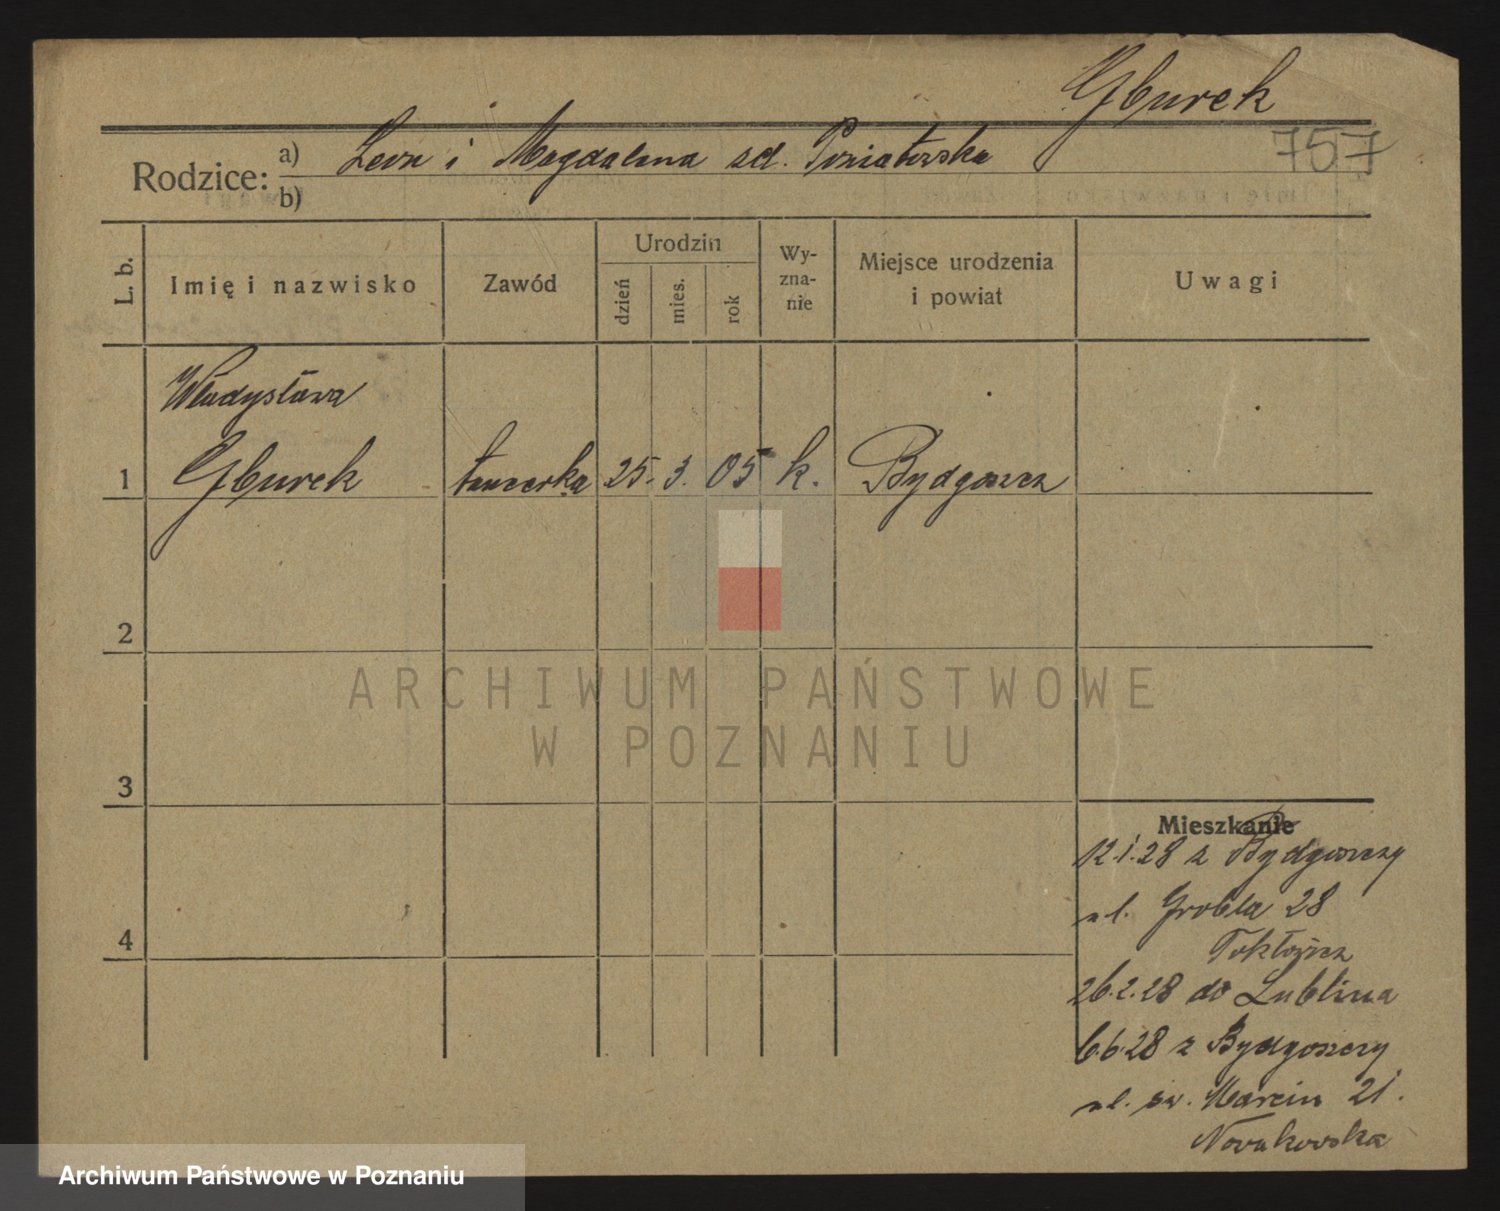 Gburek
757
Rodzice: a) Leon i Magdalena zd. Poniatowska
b)
L. b. Imię i nazwisko Zawód Urodzin dzień mies. rok Wy-zna-nie Miejsce urodzenia i powiat Uwagi
Władysława
1 Gburek tancerka 25. 3. 05 k. Bydgoszcz
2
ARCHIWUM PAŃSTWOWE
W POZNANIU
3
Mieszkanie
12.1.28 z Bydgoszczy
ul. Grobla 28
4
26.2.28 do Lublina
6.6.28 z Bydgoszczy
ul. św. Marcin 21.
Nowakowska
Archiwum Państwowe w Poznaniu